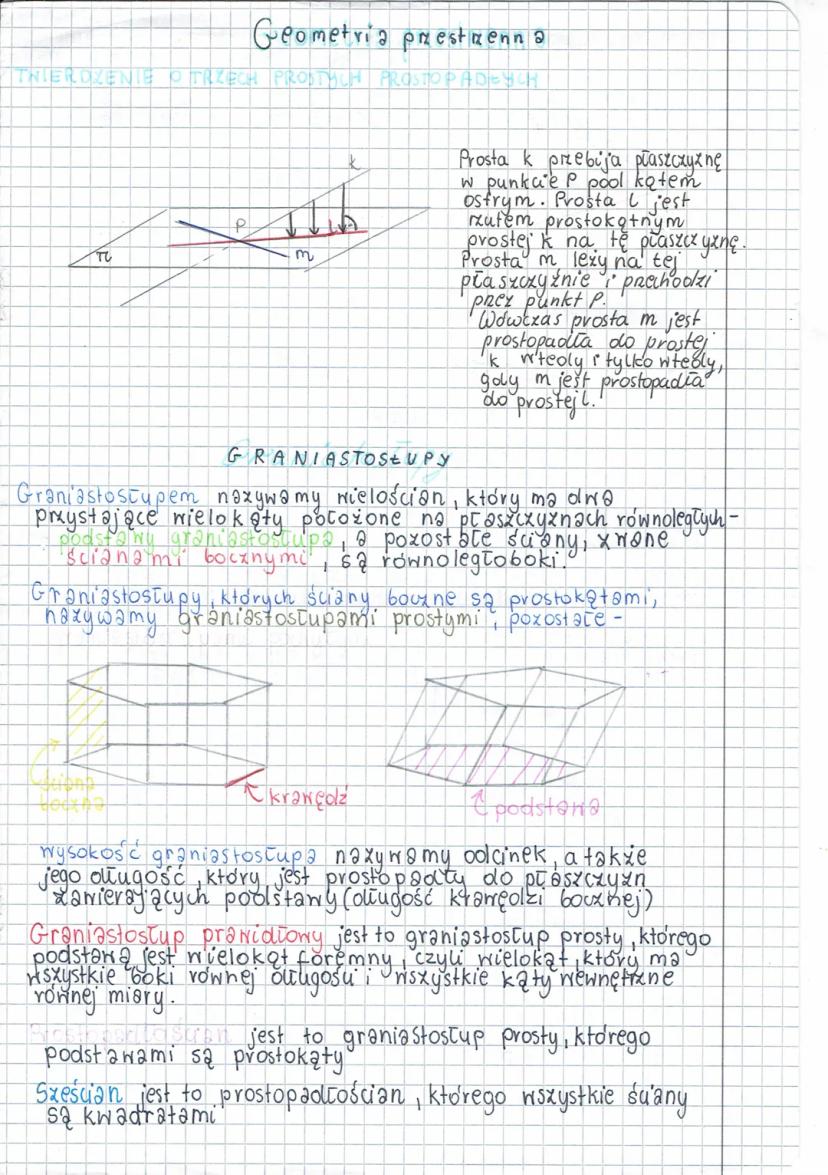 Geometria przestrzenna
TWIERDZENIE O TRZECH PROSTYCH PROSTOPADŁYCH
k
P
l
π
m
Prosta k przebija płaszczyznę
w punkcie P pod kątem
ostrym. Prosta l jest
rzutem prostokątnym
prostej k na tę płaszczyznę.
Prosta m leży na tej
płaszczyźnie i przechodzi
przez punkt P.
Wówczas prosta m jest
prostopadła do prostej
k wtedy i tylko wtedy,
gdy m jest prostopadła
do prostej l.
GRANIASTOSŁUPY
Graniastosłupem nazywamy wielościan, który ma dwa
przystające wielokąty położone na płaszczyznach równoległych-
podstawy graniastosłupa, a pozostałe ściany, zwane
ścianami bocznymi, są równoległoboki.
Graniastosłupy, których ściany boczne są prostokątami,
nazywamy graniastosłupami prostymi, pozostałe -
ściana
boczna
krawędź
podstawa
wysokość graniastosłupa nazywamy odcinek, a także
jego długość, który jest prostopadły do płaszczyzn
zawierających podstawy (długość krawędzi bocznej)
Graniastosłup prawidłowy jest to graniastosłup prosty, którego
podstawą jest wielokąt foremny, czyli wielokąt, który ma
wszystkie boki równej długości i wszystkie kąty wewnętrzne
równej miary.
Prostopadłościan jest to graniastosłup prosty, którego
podstawami są prostokąty
Sześcian jest to prostopadłościan, którego wszystkie ściany
są kwadratami